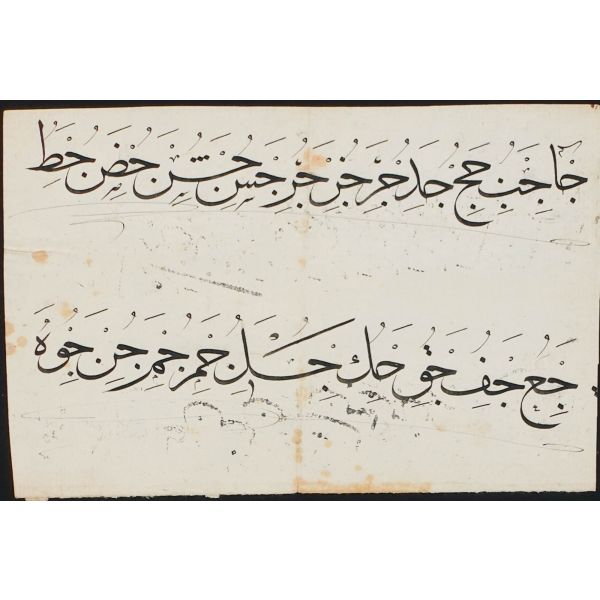 جا جب جح جد جر جز جر جس جش جض جط
جع جف جق جك جل جم جم جن جو ه